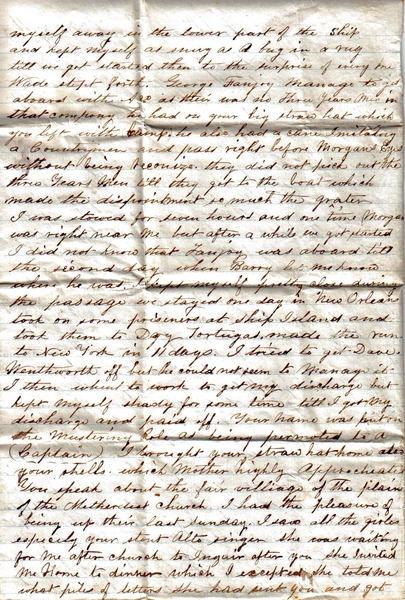 myself away in the lower part of the Ship
and kept myself as snug as A bug in a rug
till we get started then to the surprise of every one
Wade stept forth. George Fanjoy manage to get
aboard with as their was no three years Men in
that company he had on your big straw hat which
you left with Camp, he also had a cane Imitating
a Countryman and pass right before Morgans Eyes
without being reconize they did not pick out the
three Years Men till they get to the boat which
made the dispointment so much the grater
I was stowed for seven hours and one time Morgan
was right near Me but after a while we got started
I did not know that Fanjoy was aboard till
the second day when Barry let me know
where he was. I kept myself pretty close during
the passage we stayed one day in New Orleans
took on some prisoners at Ship Island and
took them to Dry Tortugas, made the run
to New York in 11 days. I tried to get Dave
Wenthworth off but he could not seem to Manage it
I then went to work to get my discharge but
kept Myself shady for some time till I got My
discharge and paid off. Your Name was put on
the Mustering Role as being permoted to a
(Captain) I brought your straw hat home also
your shells which Mother highly Approcheates
You speak about the fair village of the plain
of the Methodest church I had the pleasure of
being up their last Sunday. I saw all the girls
especily your stout Alto singer she was waiting
for Me after church to Inquir after you she Invited
Me Home to dinner which I accepted she told me
what piles of letters she had sent you and got